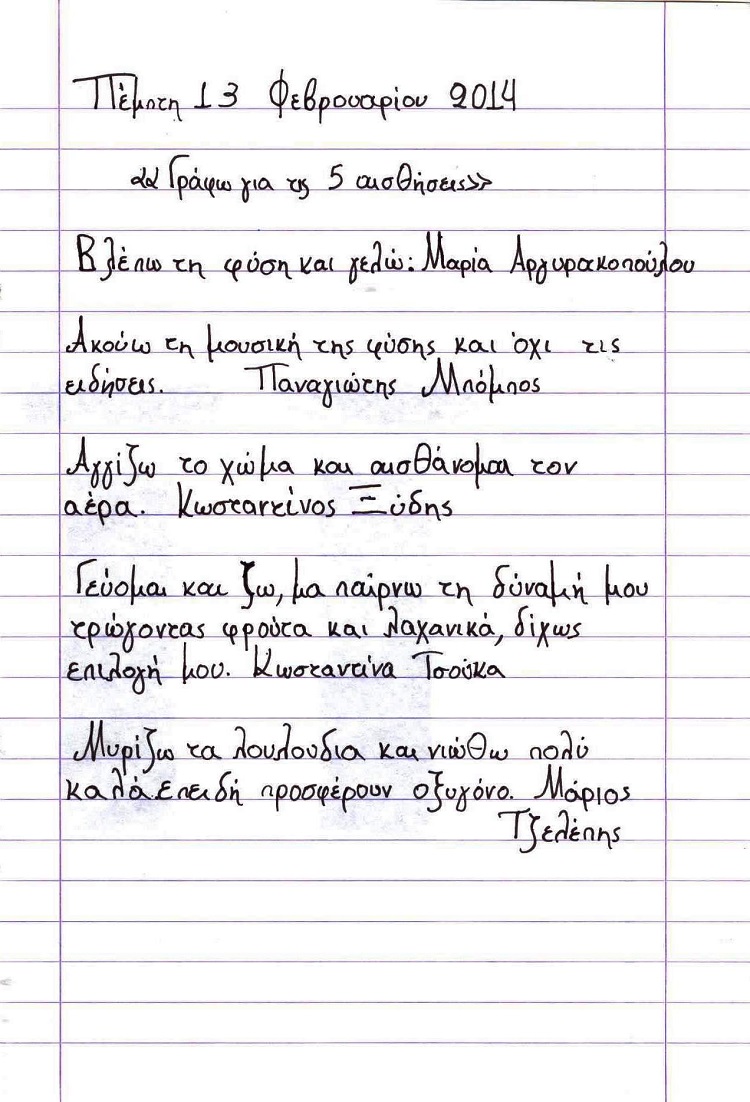 Πέμπτη 13 Φεβρουαρίου 2014
«Γράφω για τις 5 αισθήσεις»
Βλέπω τη φύση και γελώ: Μαρία Αργυρακοπούλου
Ακούω τη μουσική της φύσης και όχι τις
ειδήσεις. Παναγιώτης Μπόμπος
Αγγίζω το χώμα και αισθάνομαι τον
αέρα. Κωσταντίνος Ξύδης
Γεύομαι και ζω, μα παίρνω τη δύναμή μου
τρώγοντας φρούτα και λαχανικά, δίχως
επιλογή μου. Κωσταντίνα Τσούκα
Μυρίζω τα λουλούδια και νιώθω πολύ
καλά. Επειδή προσφέρουν οξυγόνο. Μάριος
Τζελέπης